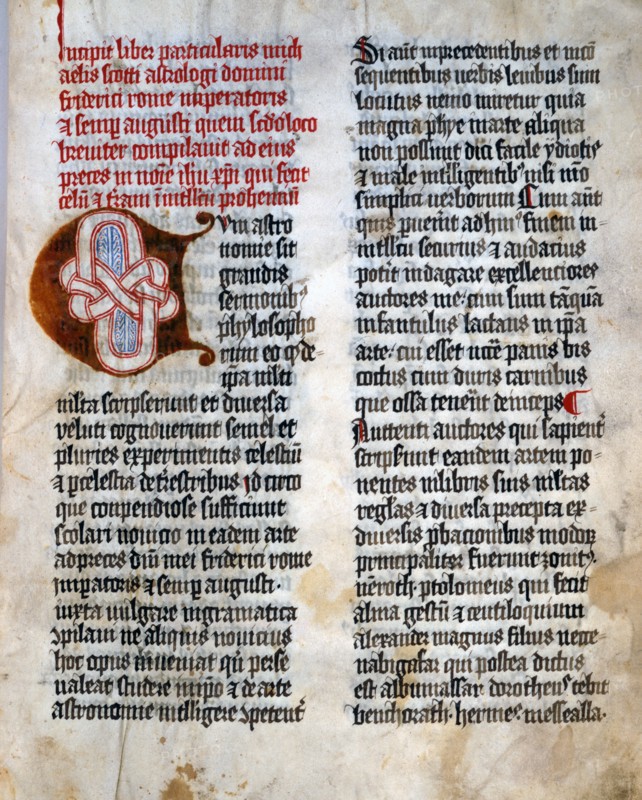 Incipit liber particularis mich
aelis scotti astrologi domini
friderici rome imperatoris
⁊ semp augusti quem scdo loco
breuiter compilauit ad eius
preces in noie ihu xpi qui fecit
celu ⁊ tram i intllcu
Cvm astro
nomie sit
grandis
sermonib⁹
phylosopho
rum eo q de
ipa ml̄ti
ml̄ta scripserunt et diuersa
veluti cognouerunt semel et
pluries experimentis celestiū
⁊ pcelestia de trestribus id circo
que conpendiose sufficiunt
scolari nouicio in eadem arte
ad preces dn̄i mei friderici rome
imperatoris ⁊ semp augusti.
iuxta uulgare in gramatica
ꝯpilaui ne aliquis nouicius
hoc opus inueniat qn̄ per se
ualeat studere in ip̄o ⁊ de arte
astronomie intlligere ꝯpetent᷒
Si aūt in precedentibus et in
sequentibus uerbis leuibus sim
locutus nemo miretur quia
magna phye marte aliqua
non possunt dici facile ydiotis
⁊ male intlligentib⁹ nisi
simplici uerborum Cum aūt
quis puenit ad hui⁹ finem in
intllcu securius ⁊ audacius
potit indagare excellentiores
auctores me. cum sim tāqua
infantulus lactans in ipa
arte. cui esset panis bis
coctus cum duris carnibus
que ossa tenent deinceps
Auttenti auctores qui sapient᷒
scripserunt eandem artem po=
nentes in libris suis ml̄tas
reglas ⁊ diuersa precepta ex=
diuersis pbacionibus modoꝝ
principaliter fuerunt
nēroth. ptolomeus qui fecit
alma gestū ⁊ centiloquium
alexander magnus filius necte=
nabi gafar qui postea dictus
est albumassar. dorotheus tebit
benchorath. hermes. messealla.